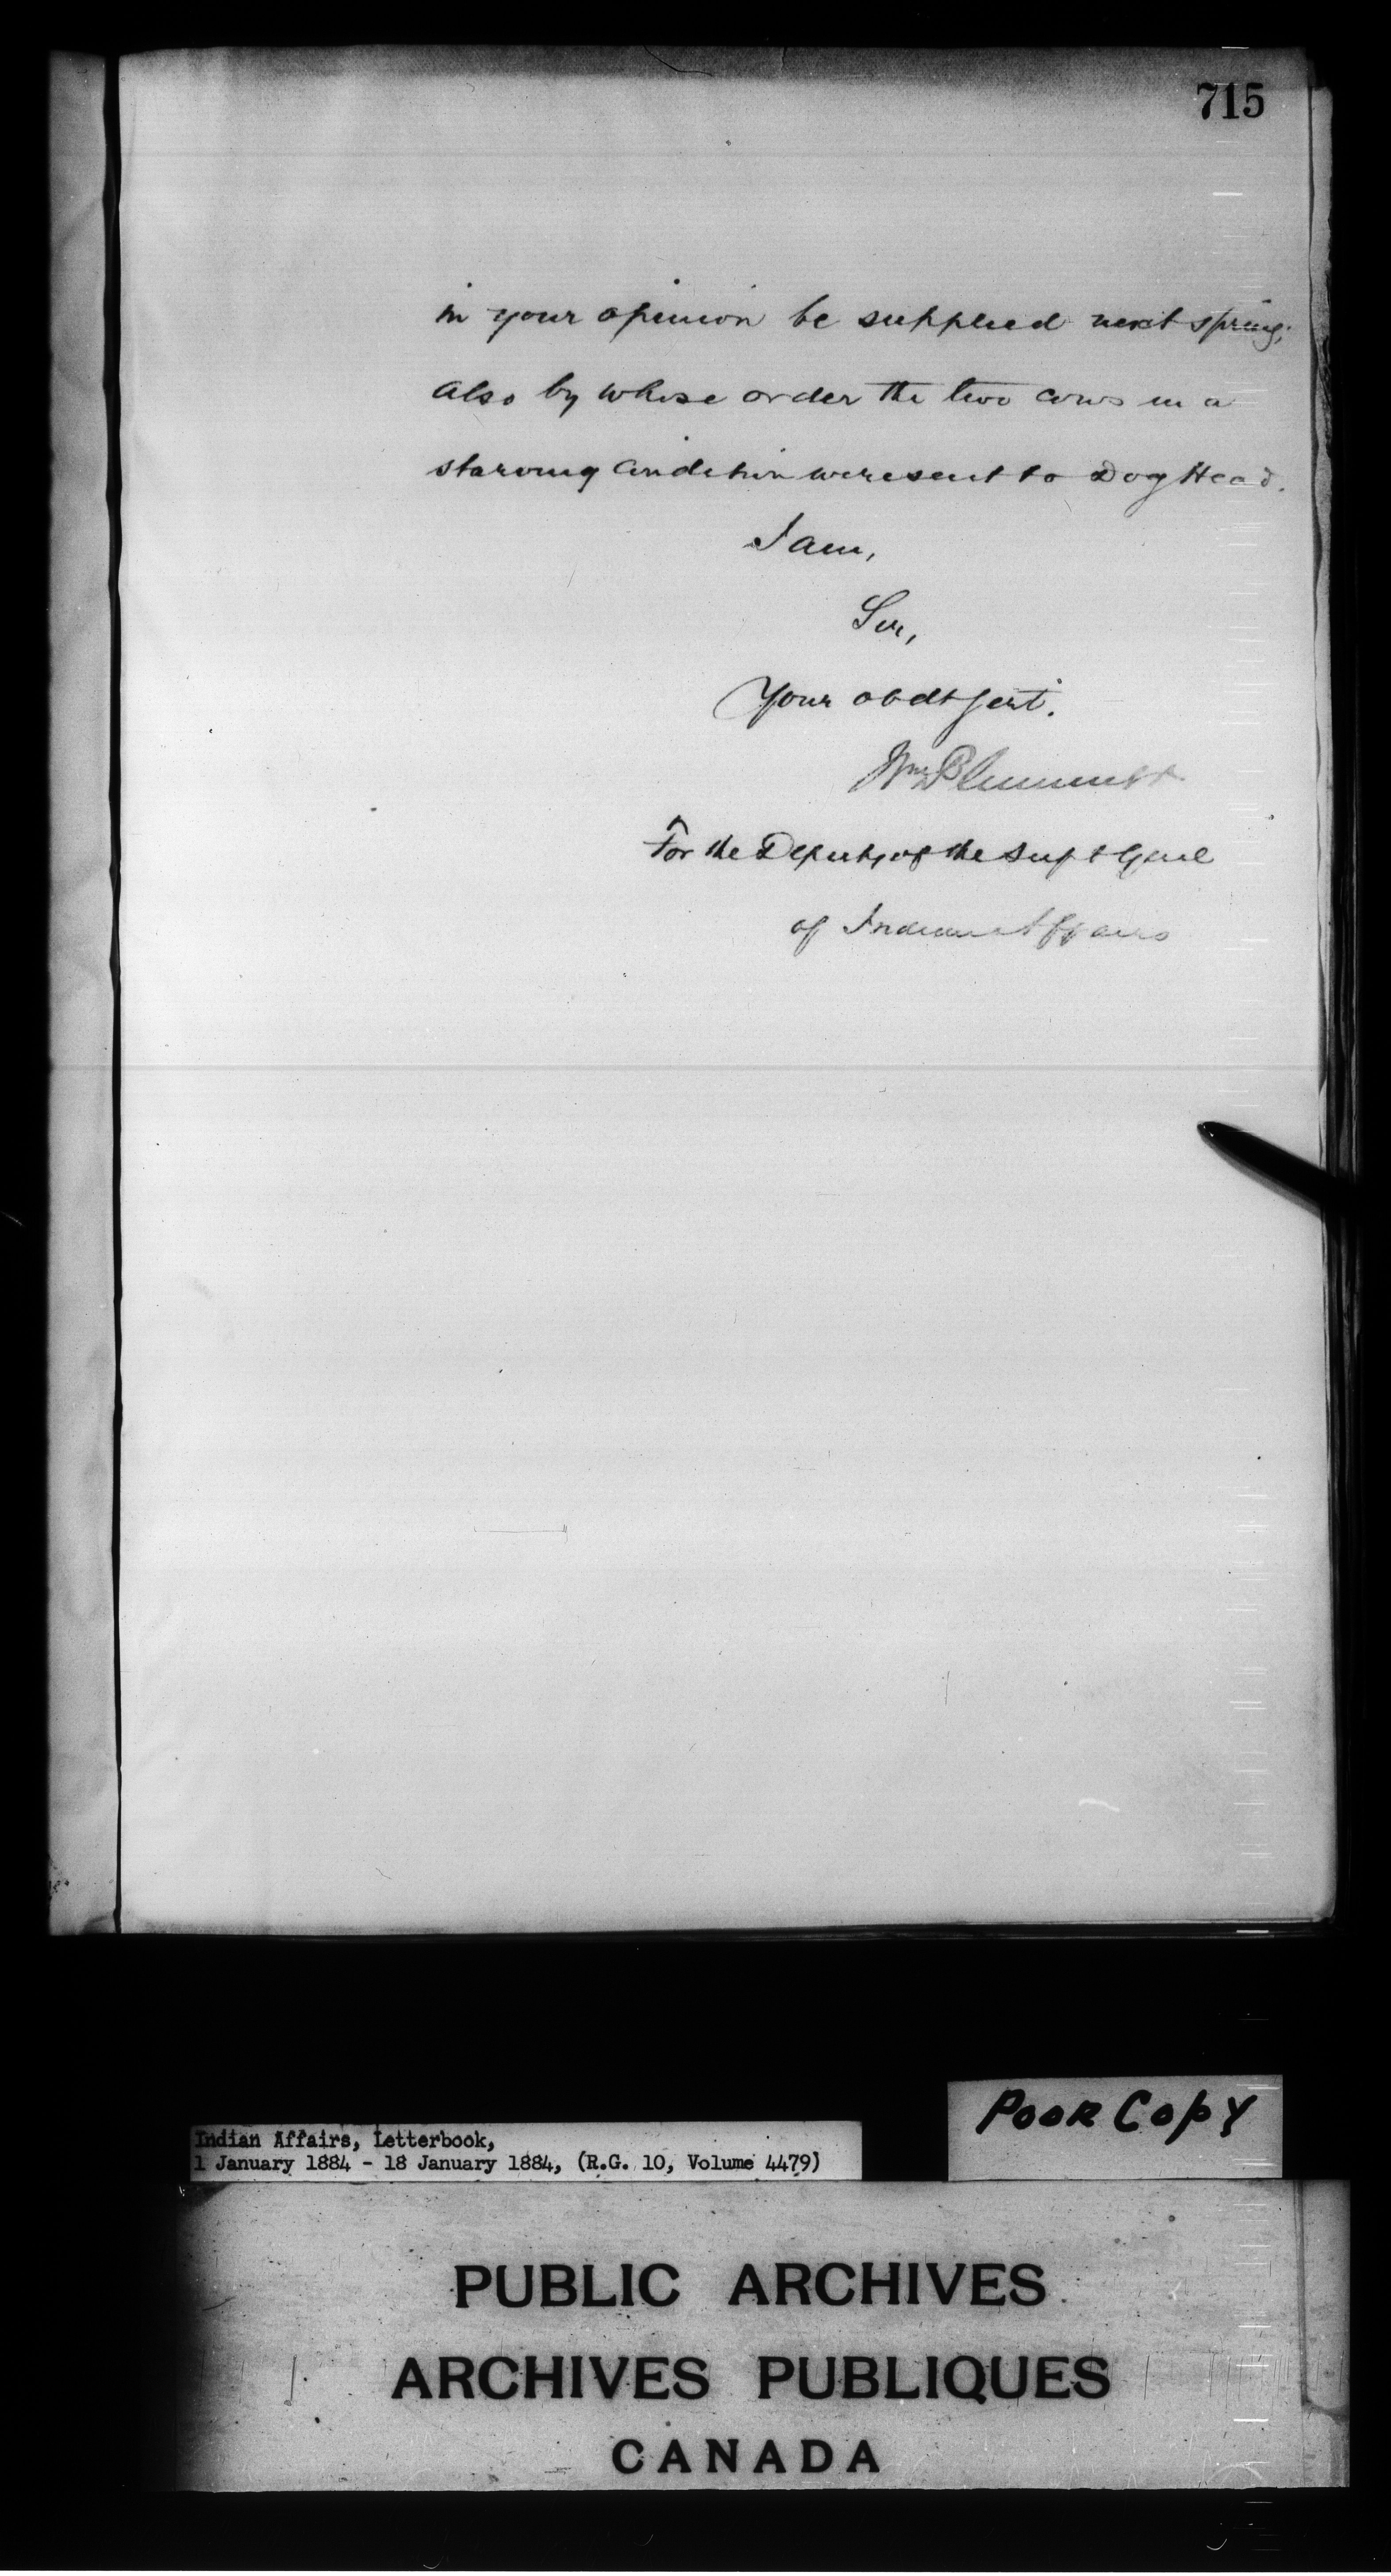 715
in your opinion be supplied next spring;
also by whose order the two cows in a
starving condition were sent to Dog Head.
I am,
Sir,
Your obdt servt.
Wm Plummer
For the Deputy of the Supt Genl
of Indian Affairs
Poor Copy
Indian Affairs, Letterbook,
1 January 1884 - 18 January 1884, (R.G. 10, Volume 4479)
PUBLIC ARCHIVES
ARCHIVES PUBLIQUES
CANADA